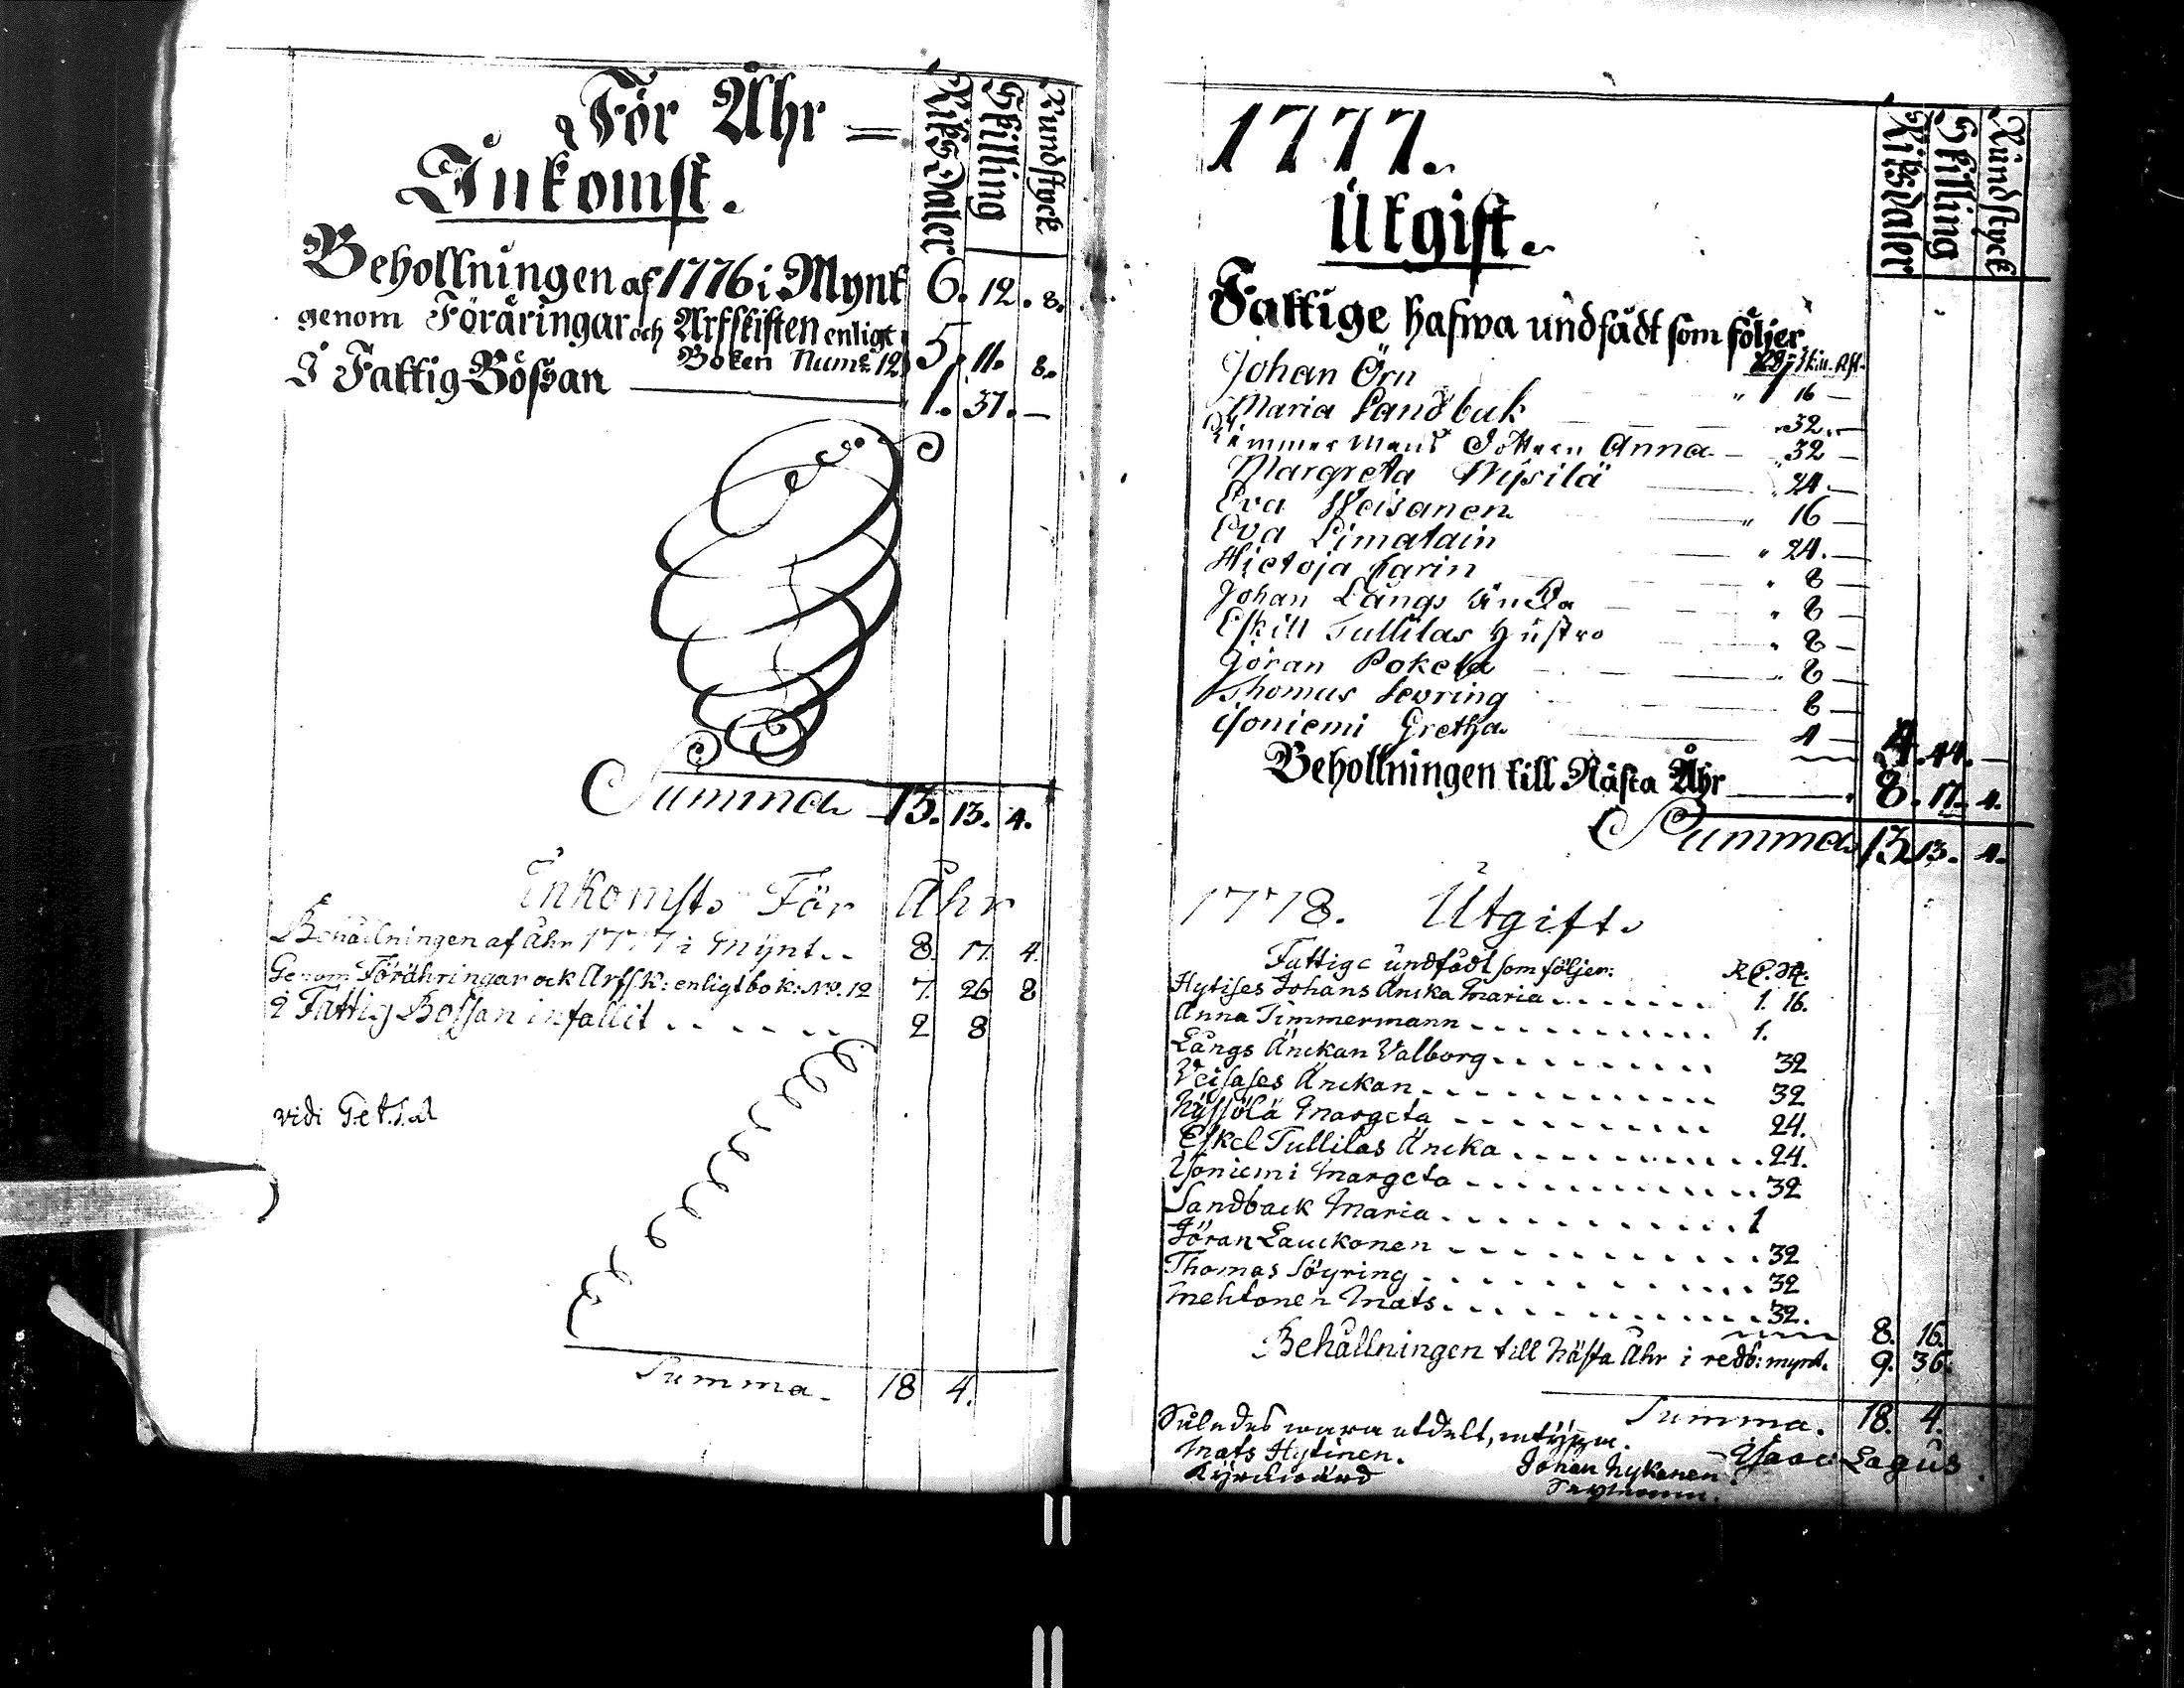 För Åhr =
RiksDaler
Skilling
Rundstyck
Inkomst.
Behollningen af 1776 i Mynt 6. 12. 8.
genom Föräringar och Arfskiften enligt
Boken Num: 12 5. 11. 8.
I Fattig Bössan 1. 37. —
Summa 13. 13. 4.
Inkomst. För Åhr
Behållningen af Åhr 1777 i Mÿnt.. 8. 17. 4.
Genom Förähringar ock Arfsk: enligt bok: No. 12 7. 26 8
i Fattig Bossan infallit . . . . . . 2 8
vidi
Summa. 18 4.
1777.
Riksdaler
Skilling
Rundstyck
Utgift.
Fattige hafwa undfådt som följer.
Rd: Skill. Rst.
Johan Örn " 16 —
Maria Sandbak " 32. —
Timmermans Dottren Anna — 32 —
Margreta Nÿsilä " 24. —
Eva Weisanen " 16 —
Eva Limatain " 24. —
Hietoja Karin " 8 —
Johan Långs Änka " 8 —
Eskill Tullilas Hustro " 8 —
Göran Pokela " 8 —
Thomas Sevring 8 —
isoniemi Gretha 4 —
4. 44. —
Behollningen till Nästa Åhr 8. 17. 4.
Summa 13. 13. 4.
1778. Utgift.
Fattige undfådt som följer:
Hytises Johans Äncka Maria . . . . . . . 1. 16.
Anna Timmermann . . . . . . . . . . 1.
Långs Änckan Valborg . . . . . . . . 32
Veisases Änckan . . . . . . . . . . 32
Nÿssölä Margeta . . . . . . . . . 24.
Eskel Tullilas Äncka . . . . . . . . . 24.
Isoniemi Margeta . . . . . . . . . . 32
Sandback Maria . . . . . . . . . . 1
Jöran Lauckonen . . . . . . . . . . 32
Thomas Söyring . . . . . . . . . . 32
Mehtonen Mats . . . . . . . . . . 32.
8. 16.
Behållningen till Nästa Åhr i redb: mynt. 9. 36.
Summa. 18. 4.
Således wara utdelt,
Mats Hytinen. Johan Nykanen Isaac Lagus
Kyrckowärd